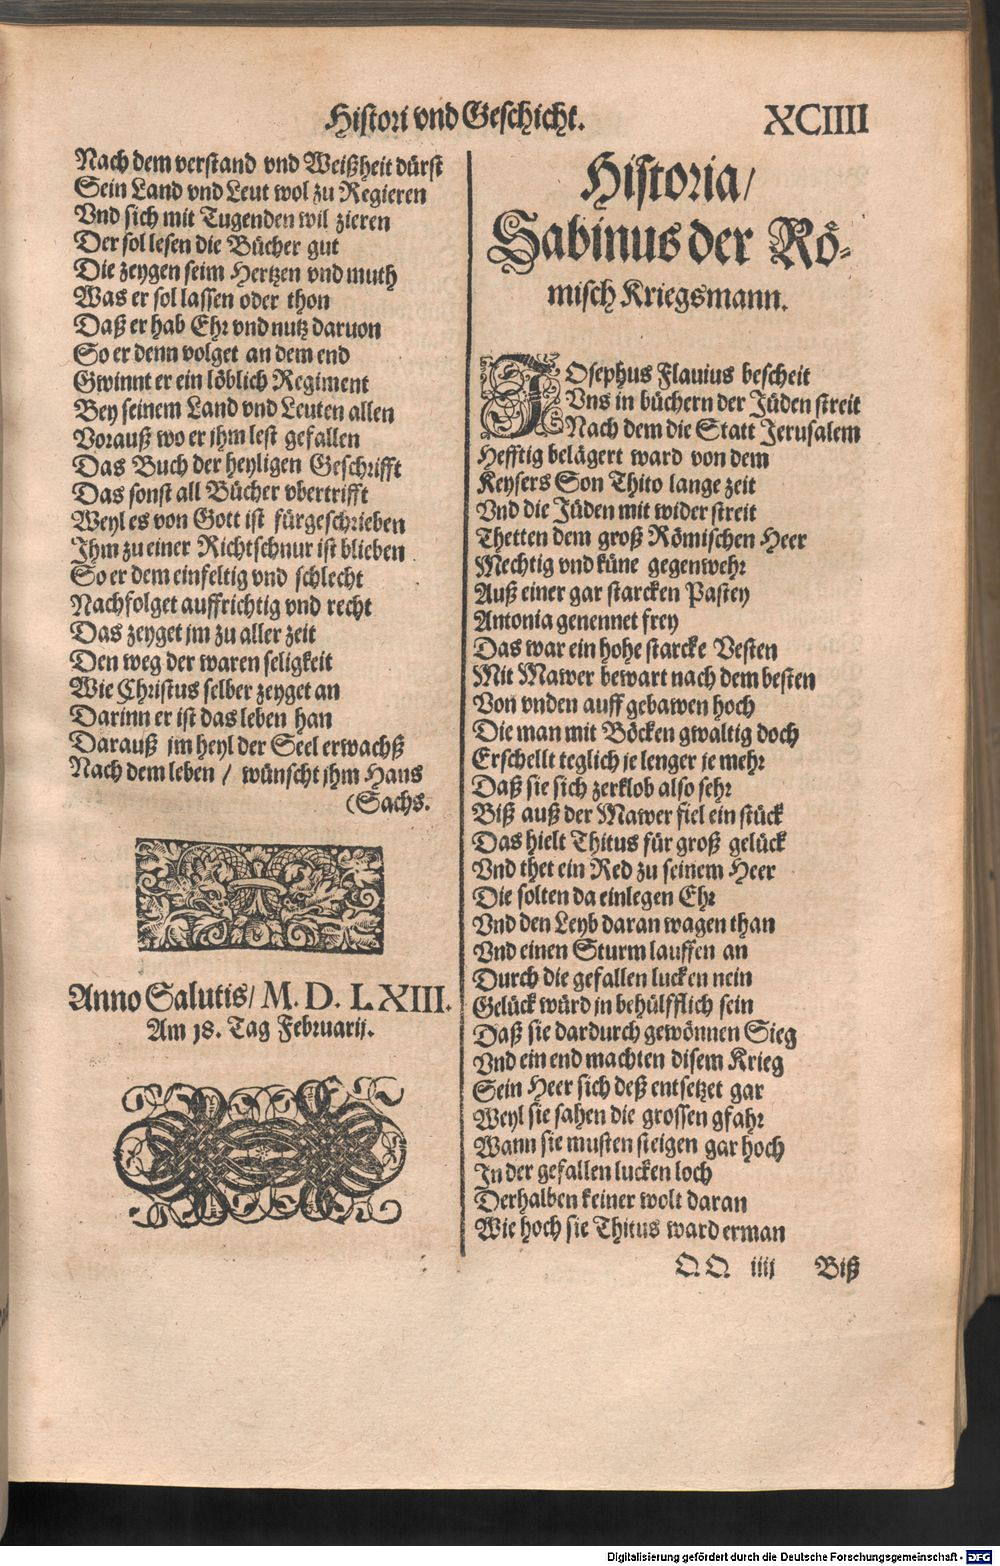 Histori vnd Geschicht. XCIIII
Nach dem verstand vnd Weißheit dürst
Sein Land vnd Leut wol zu Regieren
Vnd sich mit Tugenden wil zieren
Der sol lesen die Bücher gut
Die zeygen seim Hertzen vnd muth
Was er sol lassen oder thon
Daß er hab Ehr vnd nutz daruon
So er denn volget an dem end
Gwinnt er ein löblich Regiment
Bey seinem Land vnd Leuten allen
Vorauß wo er jhm lest gefallen
Das Buch der heyligen Geschrifft
Das sonst all Bücher vbertrifft
Weyl es von Gott ist fürgeschrieben
Jhm zu einer Richtschnur ist blieben
So er dem einfeltig vnd schlecht
Nachfolget auffrichtig vnd recht
Das zeyget jm zu aller zeit
Den weg der waren seligkeit
Wie Christus selber zeyget an
Darinn er ist das leben han
Darauß jm heyl der Seel erwachß
Nach dem leben / wünscht jhm Hans
(Sachs.
Anno Salutis/ M. D. LXIII.
Am 18. Tag Februarij.
Historia/
Sabinus der Rö-
misch Kriegsmann.
JOsephus Flauius bescheit
Vns in büchern der Jüden streit
Nach dem die Statt Jerusalem
Hefftig belägert ward von dem
Keysers Son Thito lange zeit
Vnd die Jüden mit wider streit
Thetten dem groß Römischen Heer
Mechtig vnd küne gegenwehr
Auß einer gar starcken Pastey
Antonia genennet frey
Das war ein hohe starcke Vesten
Mit Mawer bewart nach dem besten
Von vnden auff gebawen hoch
Die man mit Böcken gwaltig doch
Erschellt teglich je lenger je mehr
Daß sie sich zerklob also sehr
Biß auß der Mawer fiel ein stück
Das hielt Thitus für groß gelück
Vnd thet ein Red zu seinem Heer
Die solten da einlegen Ehr
Vnd den Leyb daran wagen than
Vnd einen Sturm lauffen an
Durch die gefallen lucken nein
Gelück würd jn behülfflich sein
Daß sie dardurch gewönnen Sieg
Vnd ein end machten disem Krieg
Sein Heer sich deß entsetzet gar
Weyl sie sahen die grossen gfahr
Wann sie musten steigen gar hoch
Jn der gefallen lucken loch
Derhalben keiner wolt daran
Wie hoch sie Thitus ward erman
QQ iiij Biß
Digitalisierung gefördert durch die Deutsche Forschungsgemeinschaft - DFG